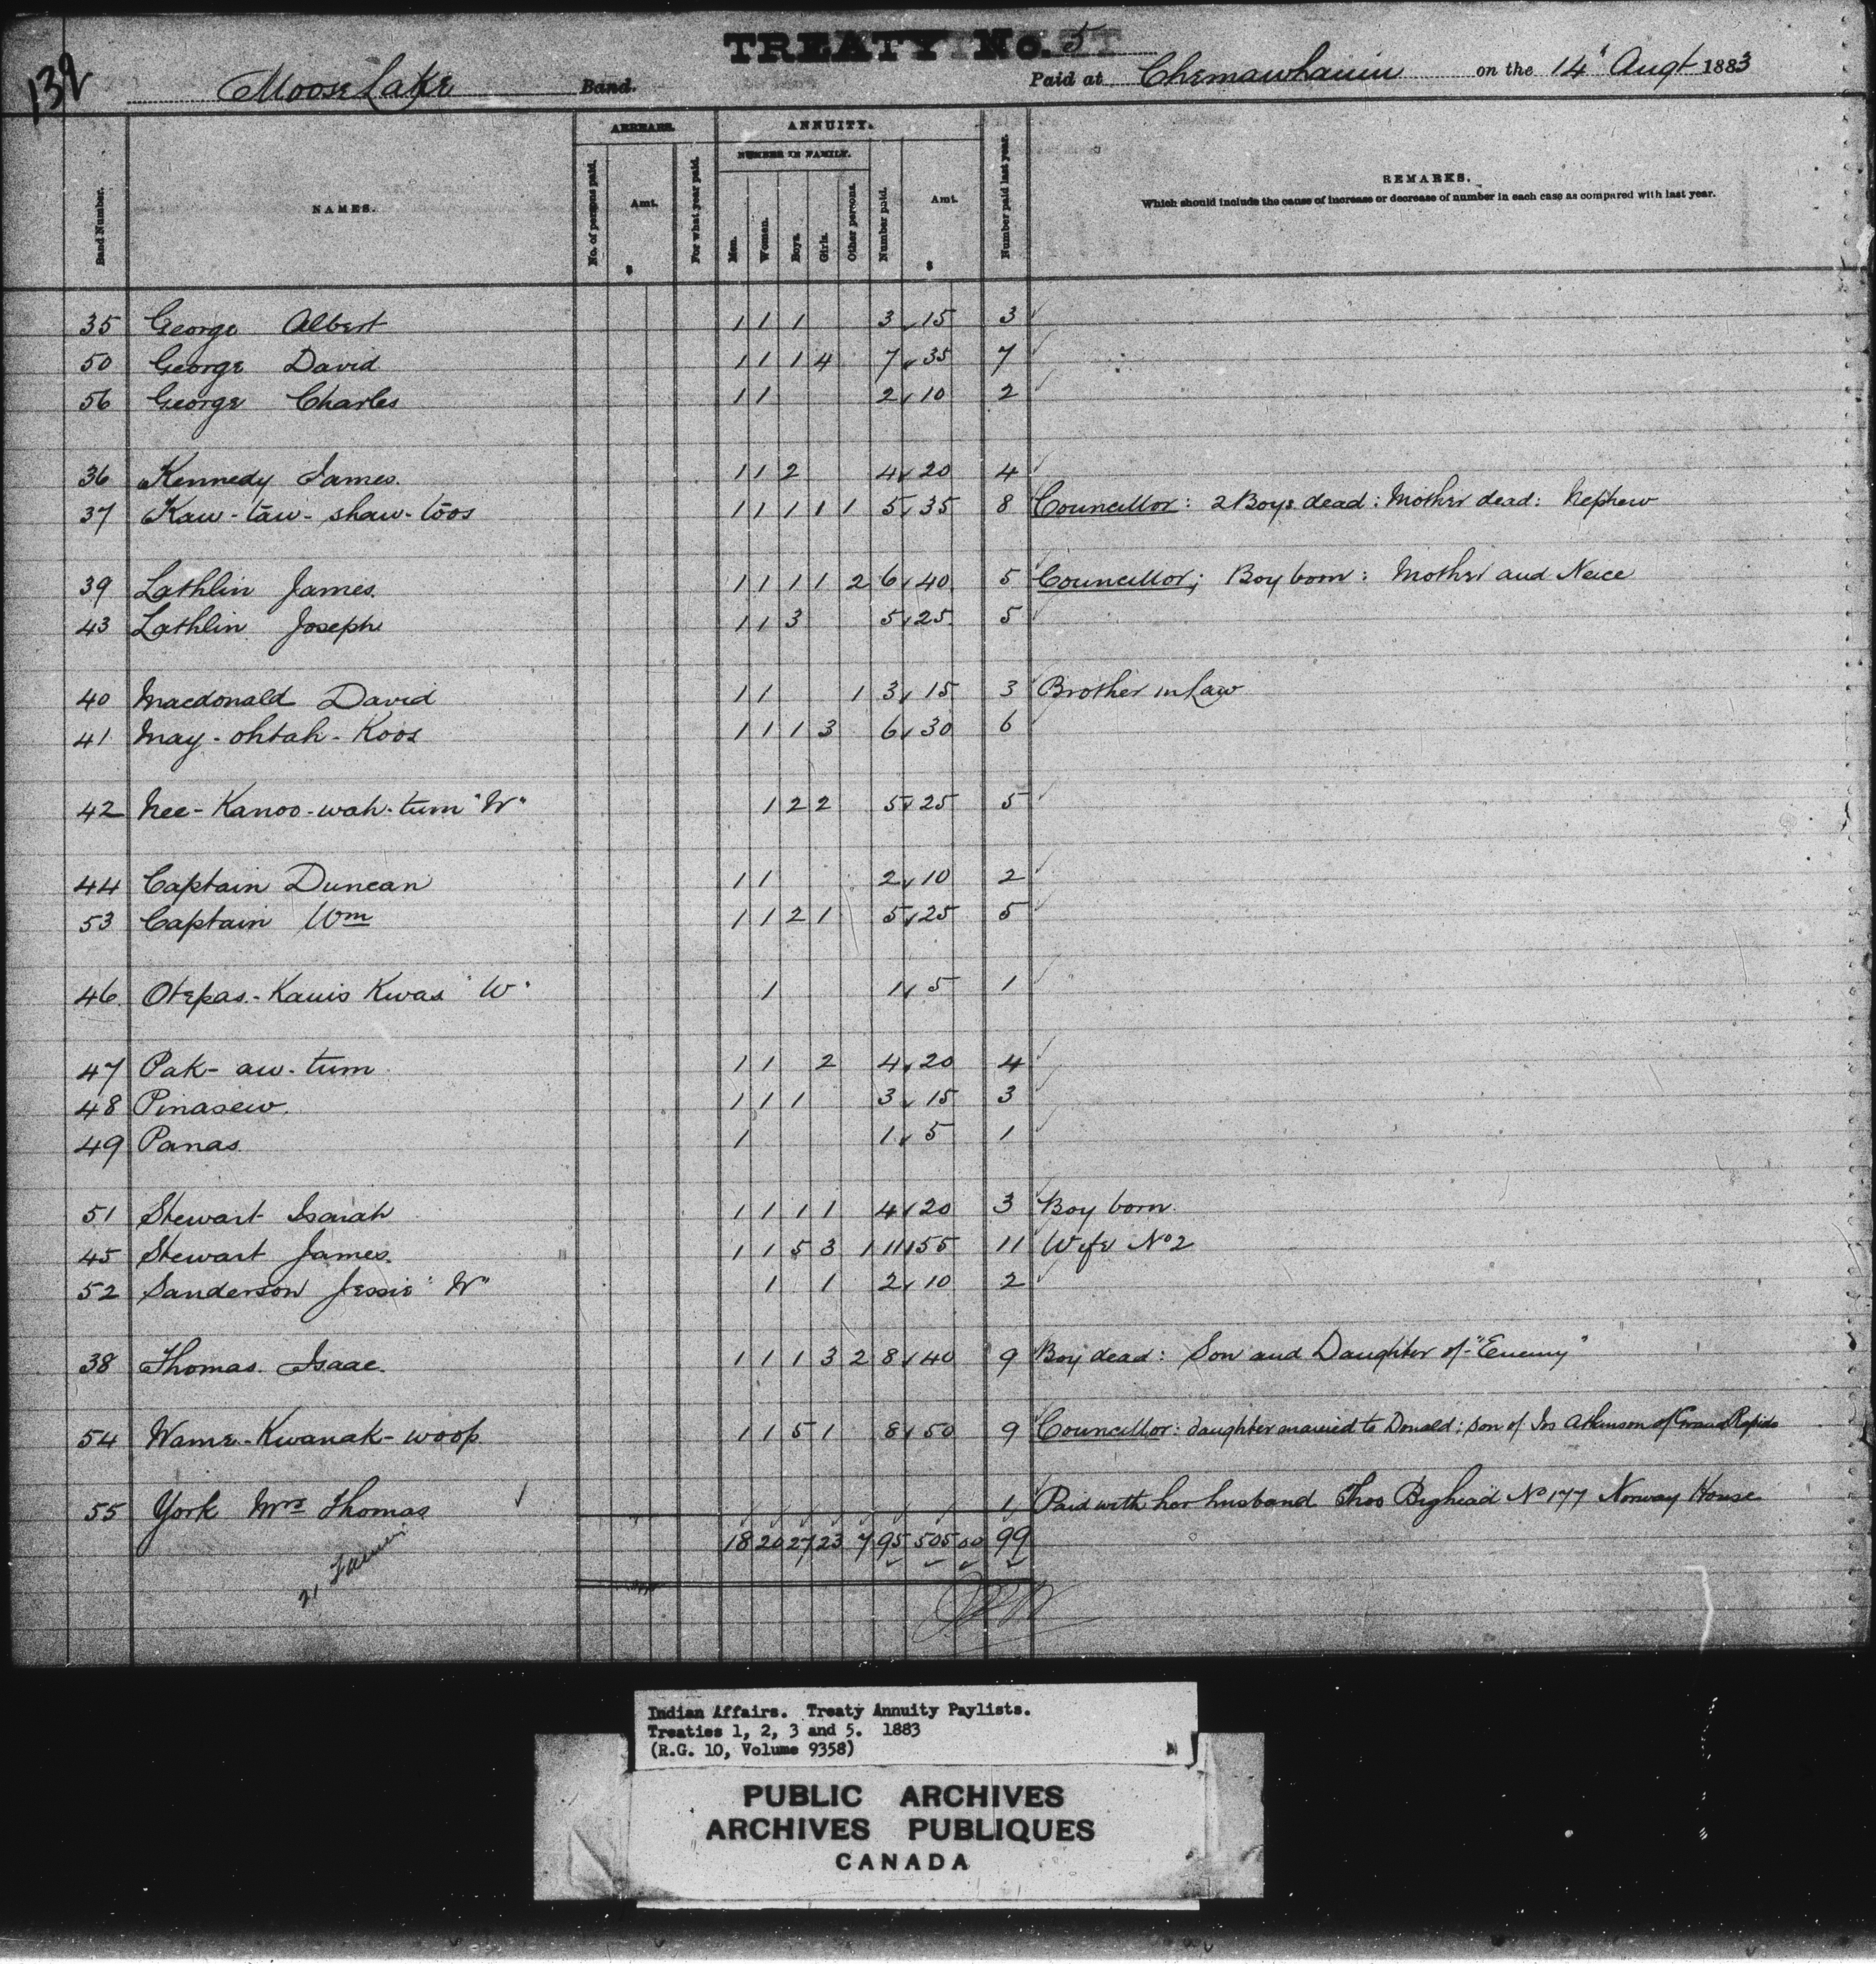 TREATY No. 5
139 Moose Lake Band. Paid at Chemawhauin on the 14' Augt 1883
ARREARS. ANNUITY.
NUMBER IN FAMILY.
Band Number. NAMES. No. of persons paid. Amt. $ For what year paid. Men. Women. Boys. Girls. Other persons. Number paid. Amt. $ Number paid last year. REMARKS.
Which should include the cause of increase or decrease of number in each case as compared with last year.
35 George Albert 1 1 1 3 15 3
50 George David 1 1 1 4 7 35 7
56 George Charles 1 1 2 10 2
36 Kennedy James. 1 1 2 4 20 4
37 Kaw-tāw-shaw-tōos 1 1 1 1 1 5 35 8 Councillor: 2 Boys dead: Mother dead: Nephew
39 Lathlin James. 1 1 1 1 2 6 40 5 Councillor; Boy born: Mother and Neice
43 Lathlin Joseph 1 1 3 5 25 5
40 Macdonald David 1 1 1 3 15 3 Brother in Law
41 May-ohtah-Koos 1 1 1 3 6 30 6
42 Nee-Kanoo-wah-tum "W" 1 2 2 5 25 5
44 Captain Duncan 1 1 2 10 2
53 Captain Wm 1 1 2 1 5 25 5
46 Otepas-Kauis Kwas "W" 1 1 5 1
47 Pak-aw-tum 1 1 2 4 20 4
48 Pinasew. 1 1 1 3 15 3
49 Panas. 1 1 5 1
51 Stewart Isaiah 1 1 1 1 4 20 3 Boy born.
45 Stewart James. 1 1 5 3 1 11 55 11 Wife No 2
52 Sanderson Jessie "W" 1 1 2 10 2
38 Thomas. Isaac. 1 1 1 3 2 8 40 9 Boy dead: Son and Daughter of "Enemy"
54 Wame-Kwanak-woop. 1 1 5 1 8 50 9 Councillor: daughter married to Donald; son of Jos Atkinson of Grand Rapids
55 York Mrs Thomas 1 Paid with her husband Thos Bighead No 177 Norway House
18 20 27 23 7 95 505 00 99
21
Indian Affairs. Treaty Annuity Paylists.
Treaties 1, 2, 3 and 5. 1883
(R.G. 10, Volume 9358)
PUBLIC ARCHIVES
ARCHIVES PUBLIQUES
CANADA